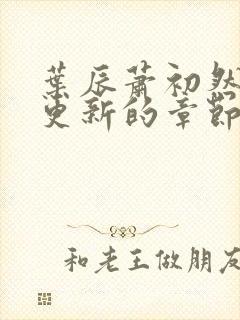 葉辰蕭初然
更新的章節
和老王做朋友